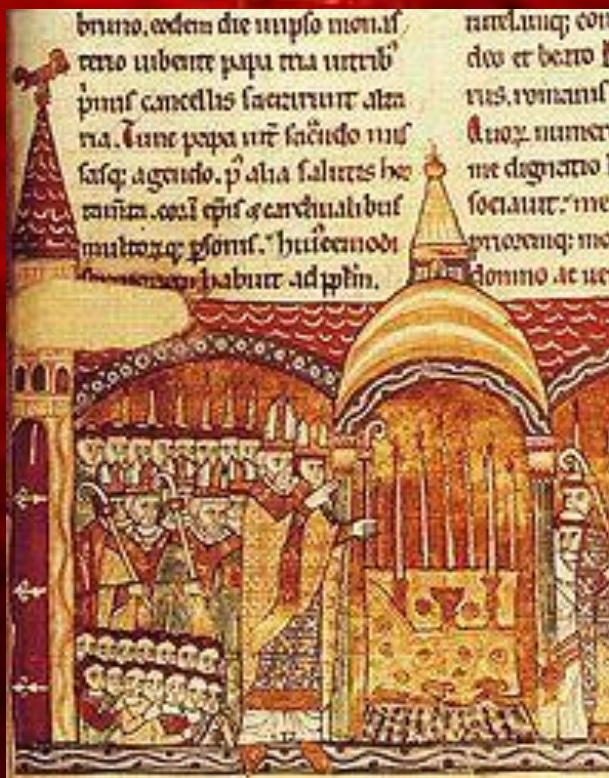 bruno. eodem die in ipso monas
terio iubente papa tria in trib'
p'mis cancellis sacrarunt alta
ria. Tunc papa int' sac'ndo mis
sasq; agendo. p' alia salutis hor
tam̄ta. corā ep̄is & cardinalibus
multorq; p'sonis. hui'cemodi
habuit ad pp'lm.
deo et beato
rus. romanus
Quoꝝ numer
me dignatio
sociauit. me
prioremq; mo
domno ac ue